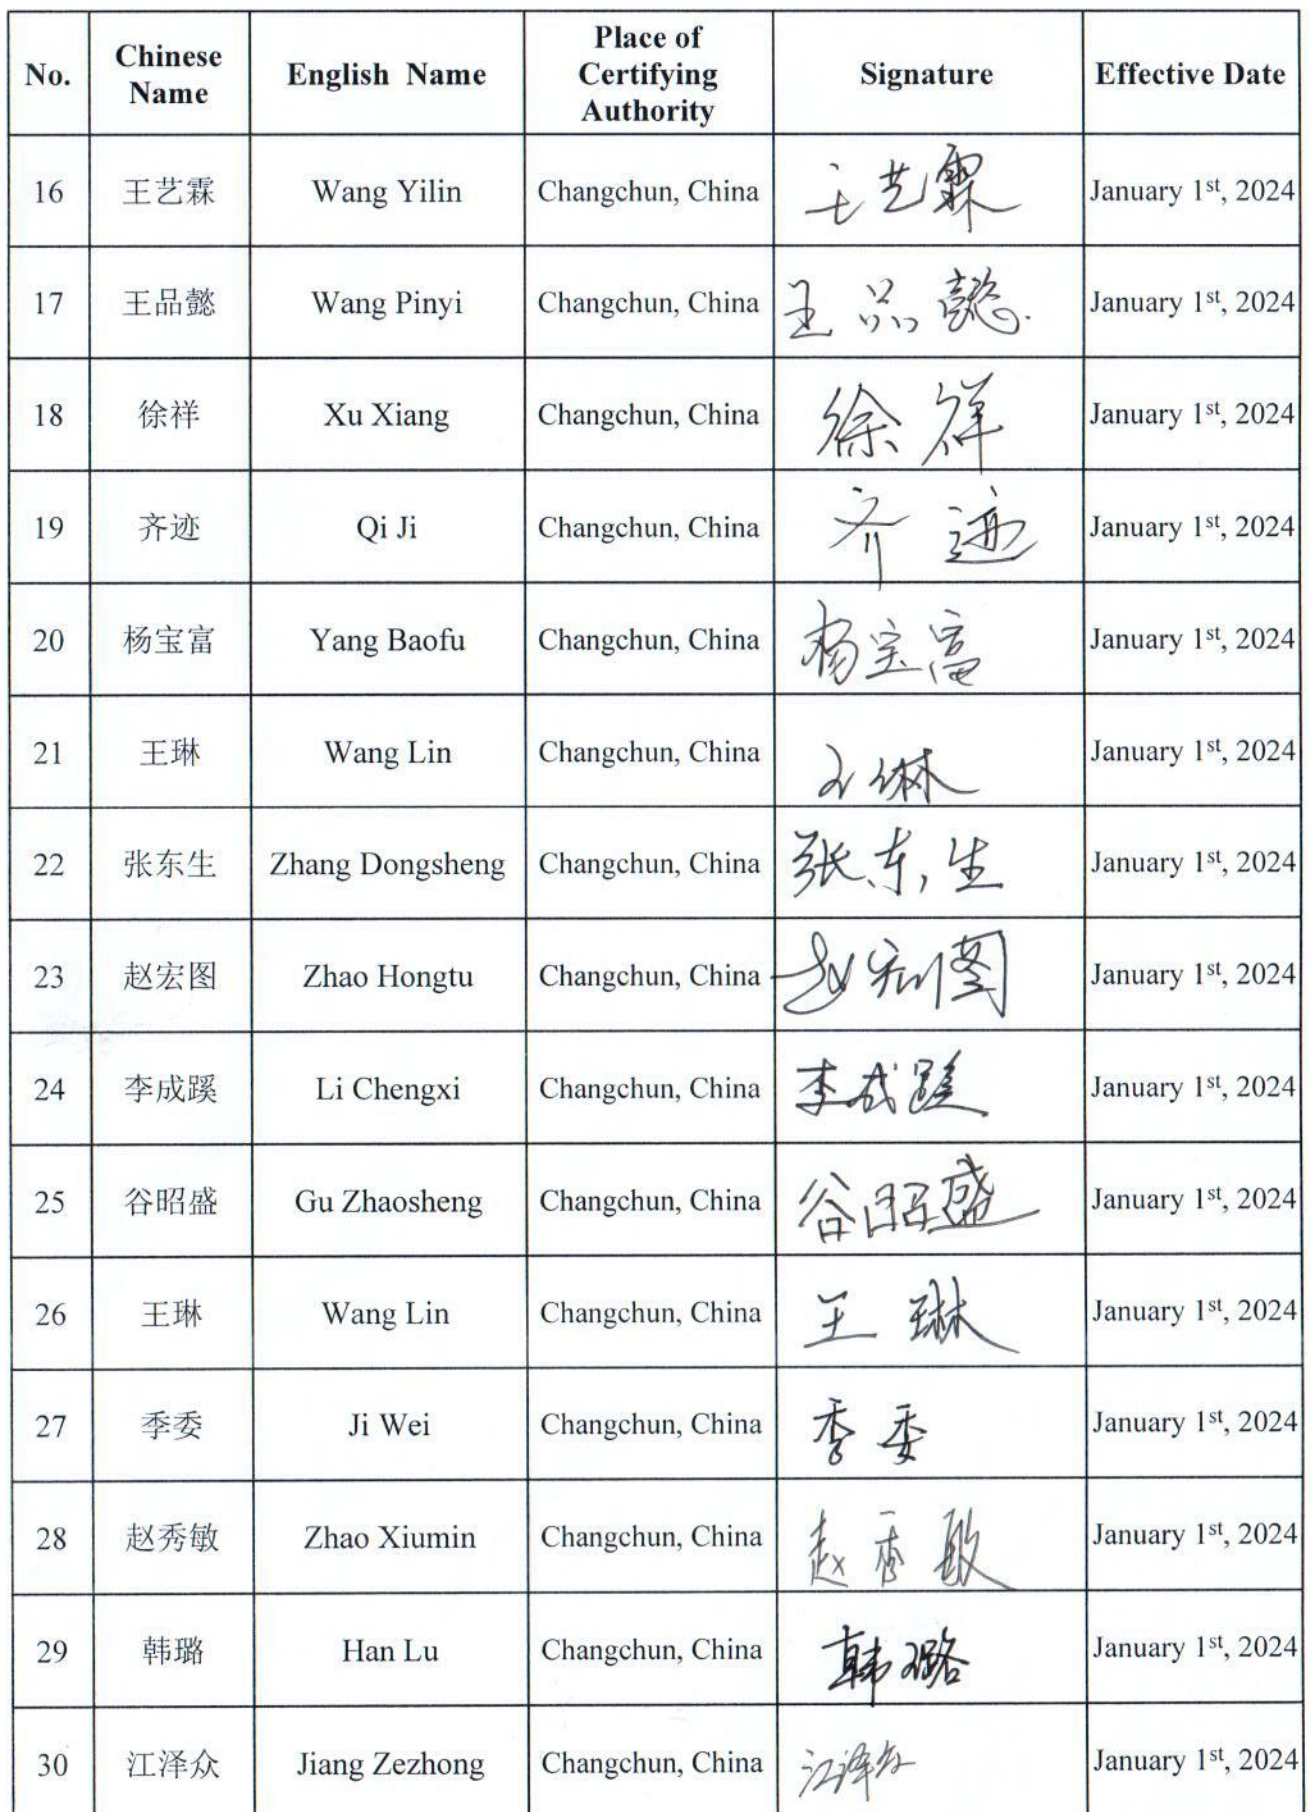 No. Chinese Name English Name Place of Certifying Authority Signature Effective Date
16 王艺霖 Wang Yilin Changchun, China 王艺霖 January 1st, 2024
17 王品懿 Wang Pinyi Changchun, China 王品懿 January 1st, 2024
18 徐祥 Xu Xiang Changchun, China 徐祥 January 1st, 2024
19 齐迹 Qi Ji Changchun, China 齐迹 January 1st, 2024
20 杨宝富 Yang Baofu Changchun, China 杨宝富 January 1st, 2024
21 王琳 Wang Lin Changchun, China 王琳 January 1st, 2024
22 张东生 Zhang Dongsheng Changchun, China 张东生 January 1st, 2024
23 赵宏图 Zhao Hongtu Changchun, China 赵宏图 January 1st, 2024
24 李成蹊 Li Chengxi Changchun, China 李成蹊 January 1st, 2024
25 谷昭盛 Gu Zhaosheng Changchun, China 谷昭盛 January 1st, 2024
26 王琳 Wang Lin Changchun, China 王琳 January 1st, 2024
27 季委 Ji Wei Changchun, China 季委 January 1st, 2024
28 赵秀敏 Zhao Xiumin Changchun, China 赵秀敏 January 1st, 2024
29 韩璐 Han Lu Changchun, China 韩璐 January 1st, 2024
30 江泽众 Jiang Zezhong Changchun, China 江泽众 January 1st, 2024